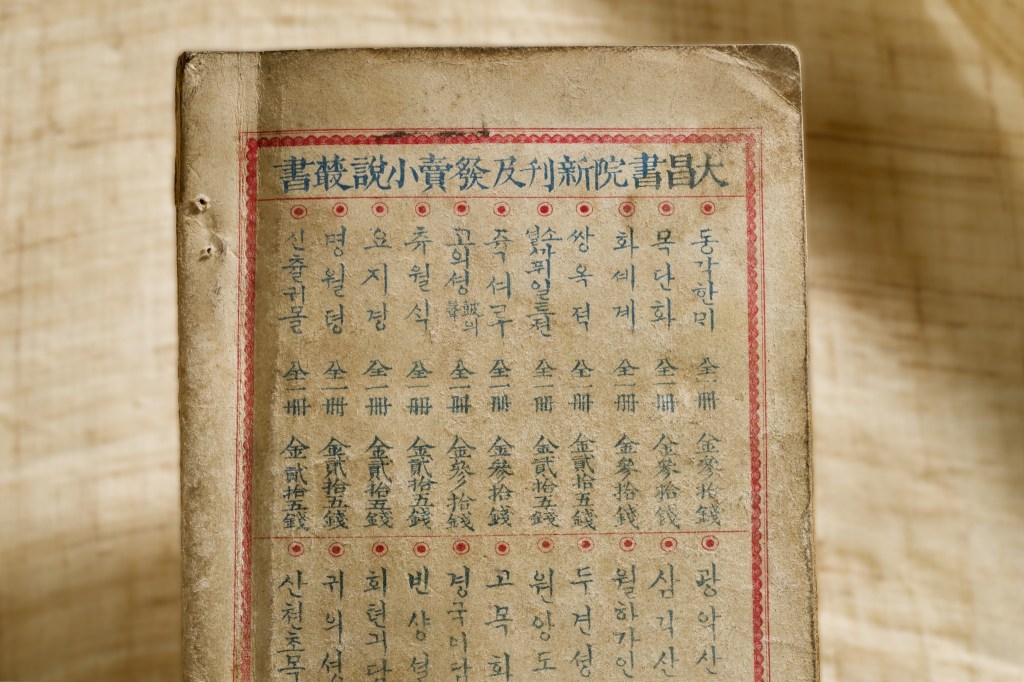 大昌書院新刊及發賣小說叢書
동각한미 全一冊 金參拾錢
목단화 全一冊 金參拾錢
화세계 全一冊 金參拾錢
쌍옥적 全一冊 金貳拾五錢
全一冊 金貳拾五錢
쥭셔루 全一冊 金參拾錢
고의셩 全一冊 金參拾錢
츄월식 全一冊 金貳拾五錢
요지경 全一冊 金貳拾五錢
명월뎡 全一冊 金貳拾五錢
신출귀몰 全一冊 金貳拾五錢
광악산
삼각산
월하가인
두견성
원앙도
고목화
경국미담
빈샹셜
회텬긔담
귀의셩
산쳔초목